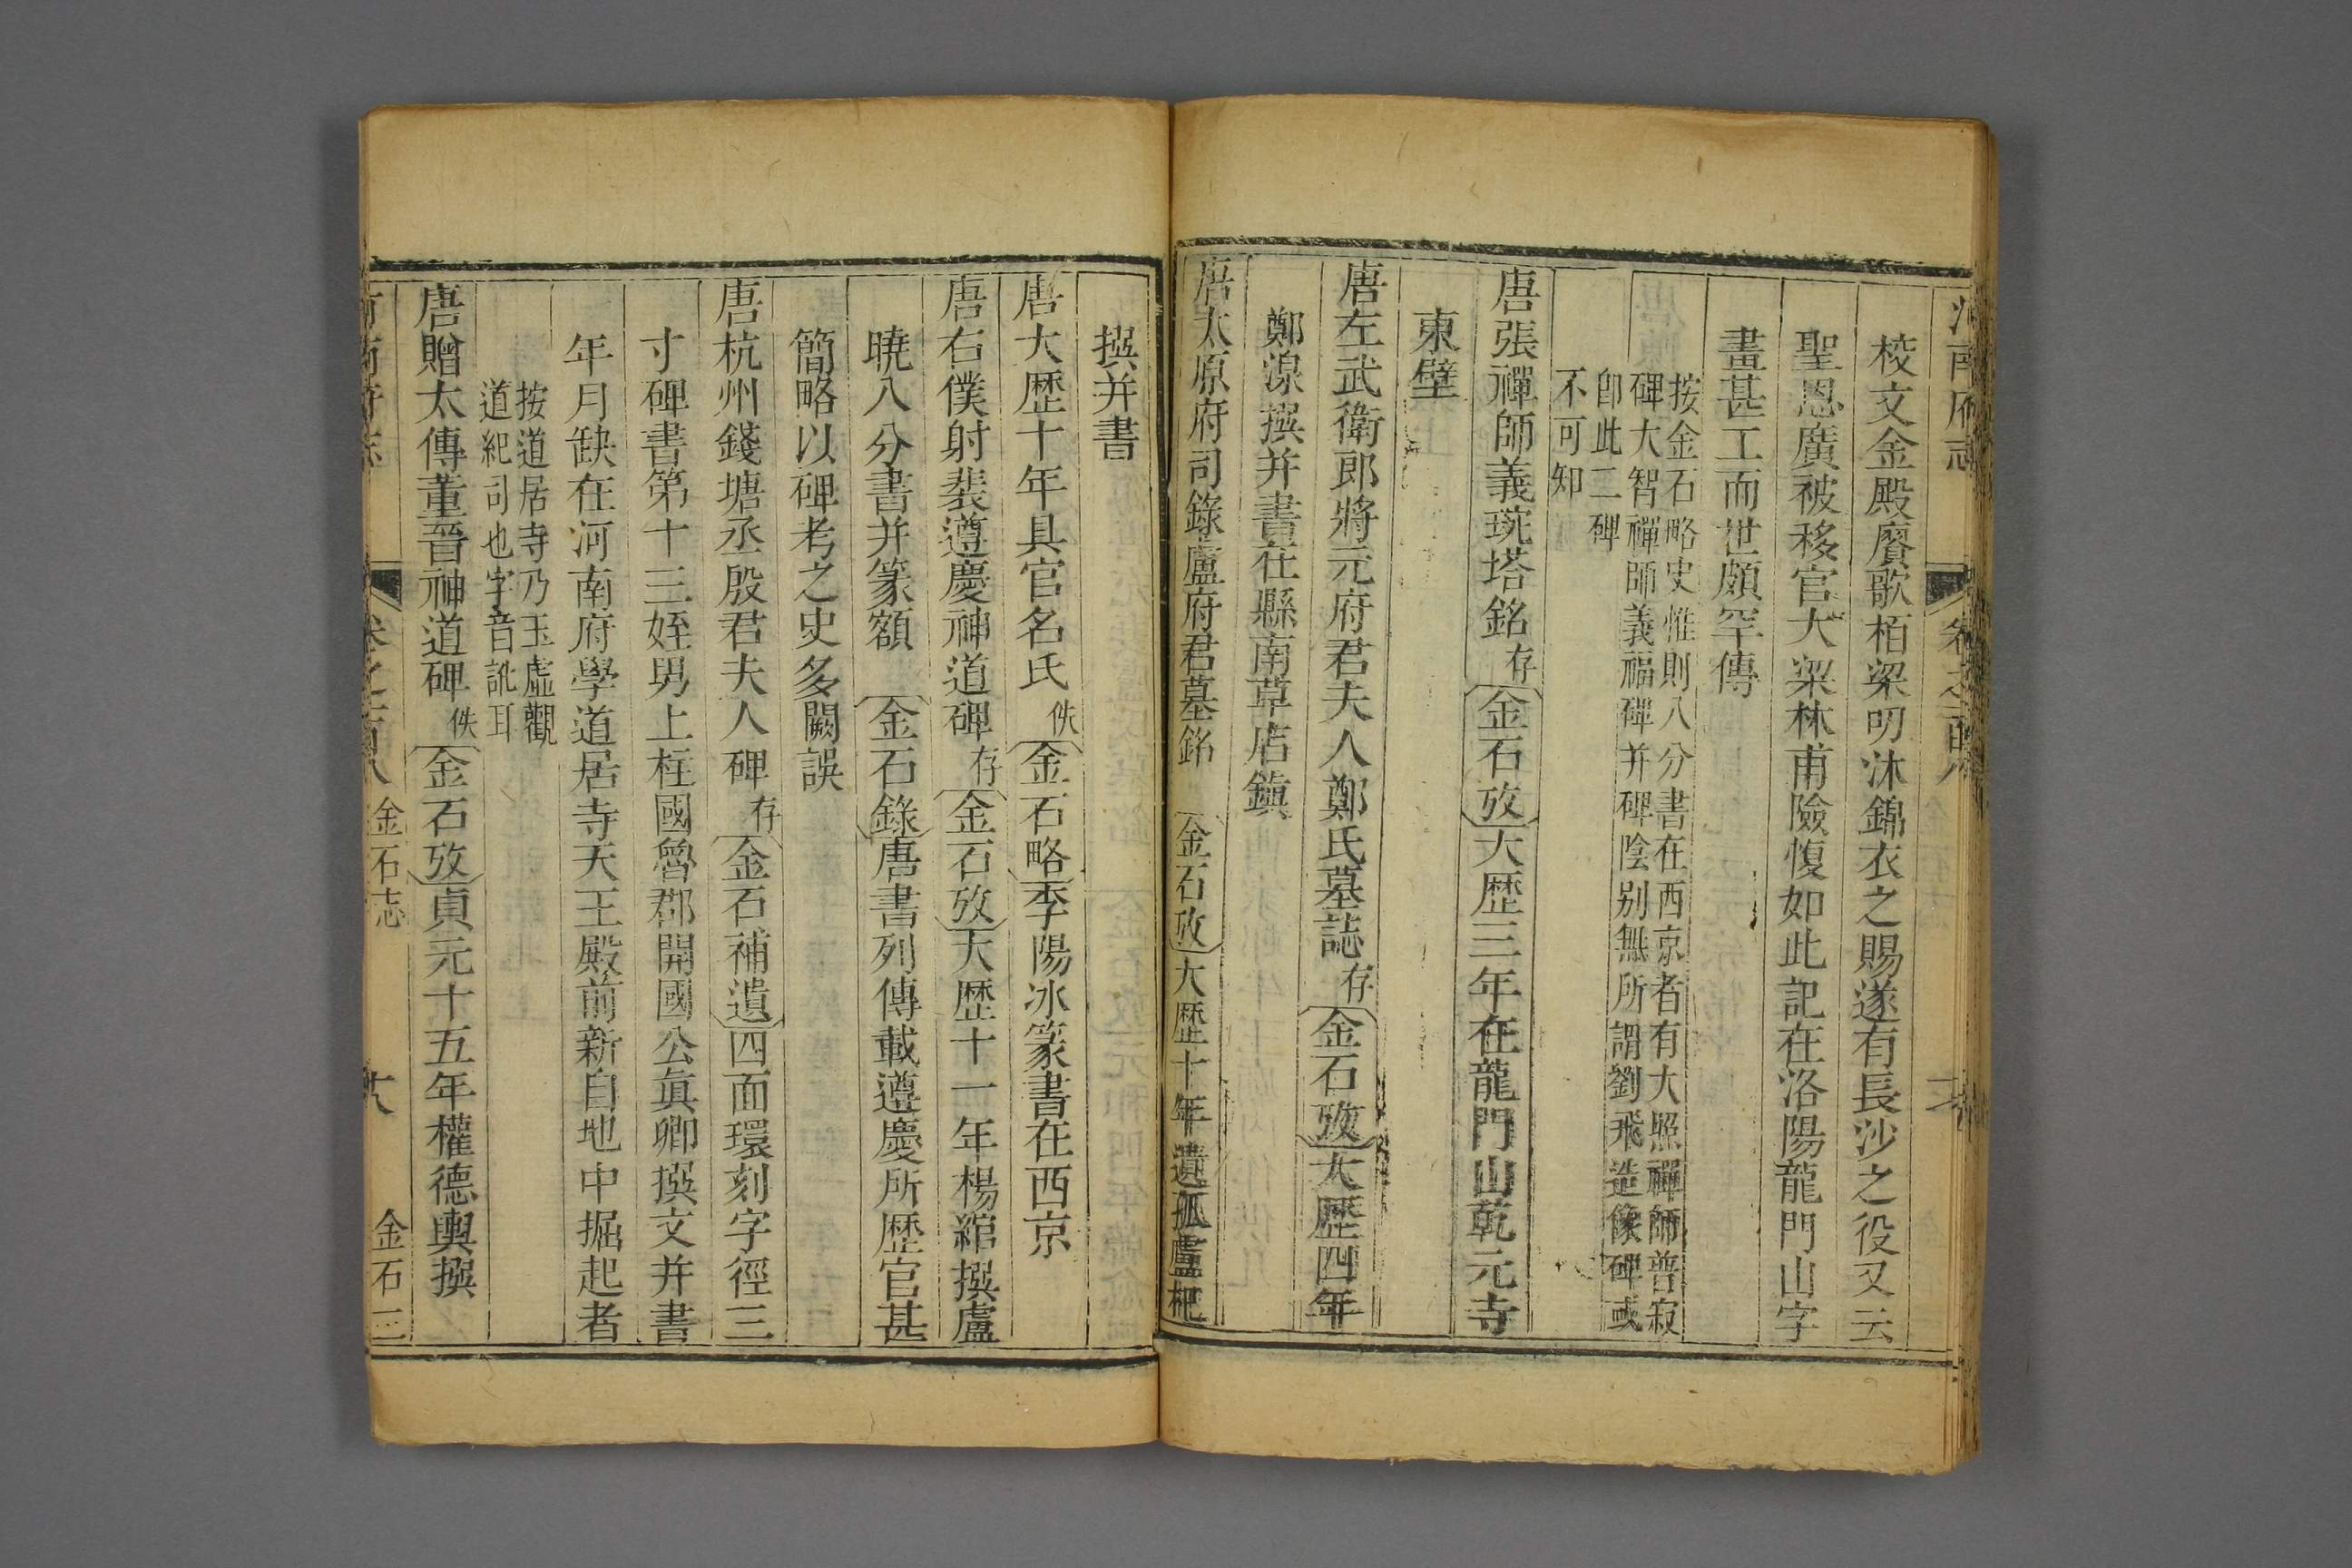 河南府志 卷之一百八
校文金殿賡歌栢梁叨沐錦衣之賜遂有長沙之役又云
聖恩廣被移官大梁林甫險愎如此記在洛陽龍門山字
畫甚工而世頗罕傳
按金石略史惟則八分書在西京者有大照禪師普寂
碑大智禪師義福碑并碑陰别無所謂劉飛造像碑或
卽此二碑
不可知
唐張禪師義琬塔銘存金石攷大歷三年在龍門山乾元寺
東壁
唐左武衛郎將元府君夫人鄭氏墓誌存金石攷大歷四年
鄭湶撰并書在縣南草店鎮
唐太原府司錄盧府君墓銘 金石攷大歷十年遺孤盧杞
撰并書
唐大歷十年具官名氏佚金石略李陽冰篆書在西京
唐右僕射裴遵慶神道碑存金石攷大歷十一年楊綰撰盧
曉八分書并篆額 金石錄唐書列傳載遵慶所歷官甚
簡略以碑考之史多闕誤
唐杭州錢塘丞殷君夫人碑存金石補遺四面環刻字徑三
寸碑書第十三姪男上柱國魯郡開國公眞卿撰文并書
年月缺在河南府學道居寺天王殿前新自地中掘起者
按道居寺乃玉虛觀
道紀司也字音訛耳
唐贈太傅董晉神道碑佚金石攷貞元十五年權德輿撰
河南府志 卷之一百八 金石志 十八 金石三